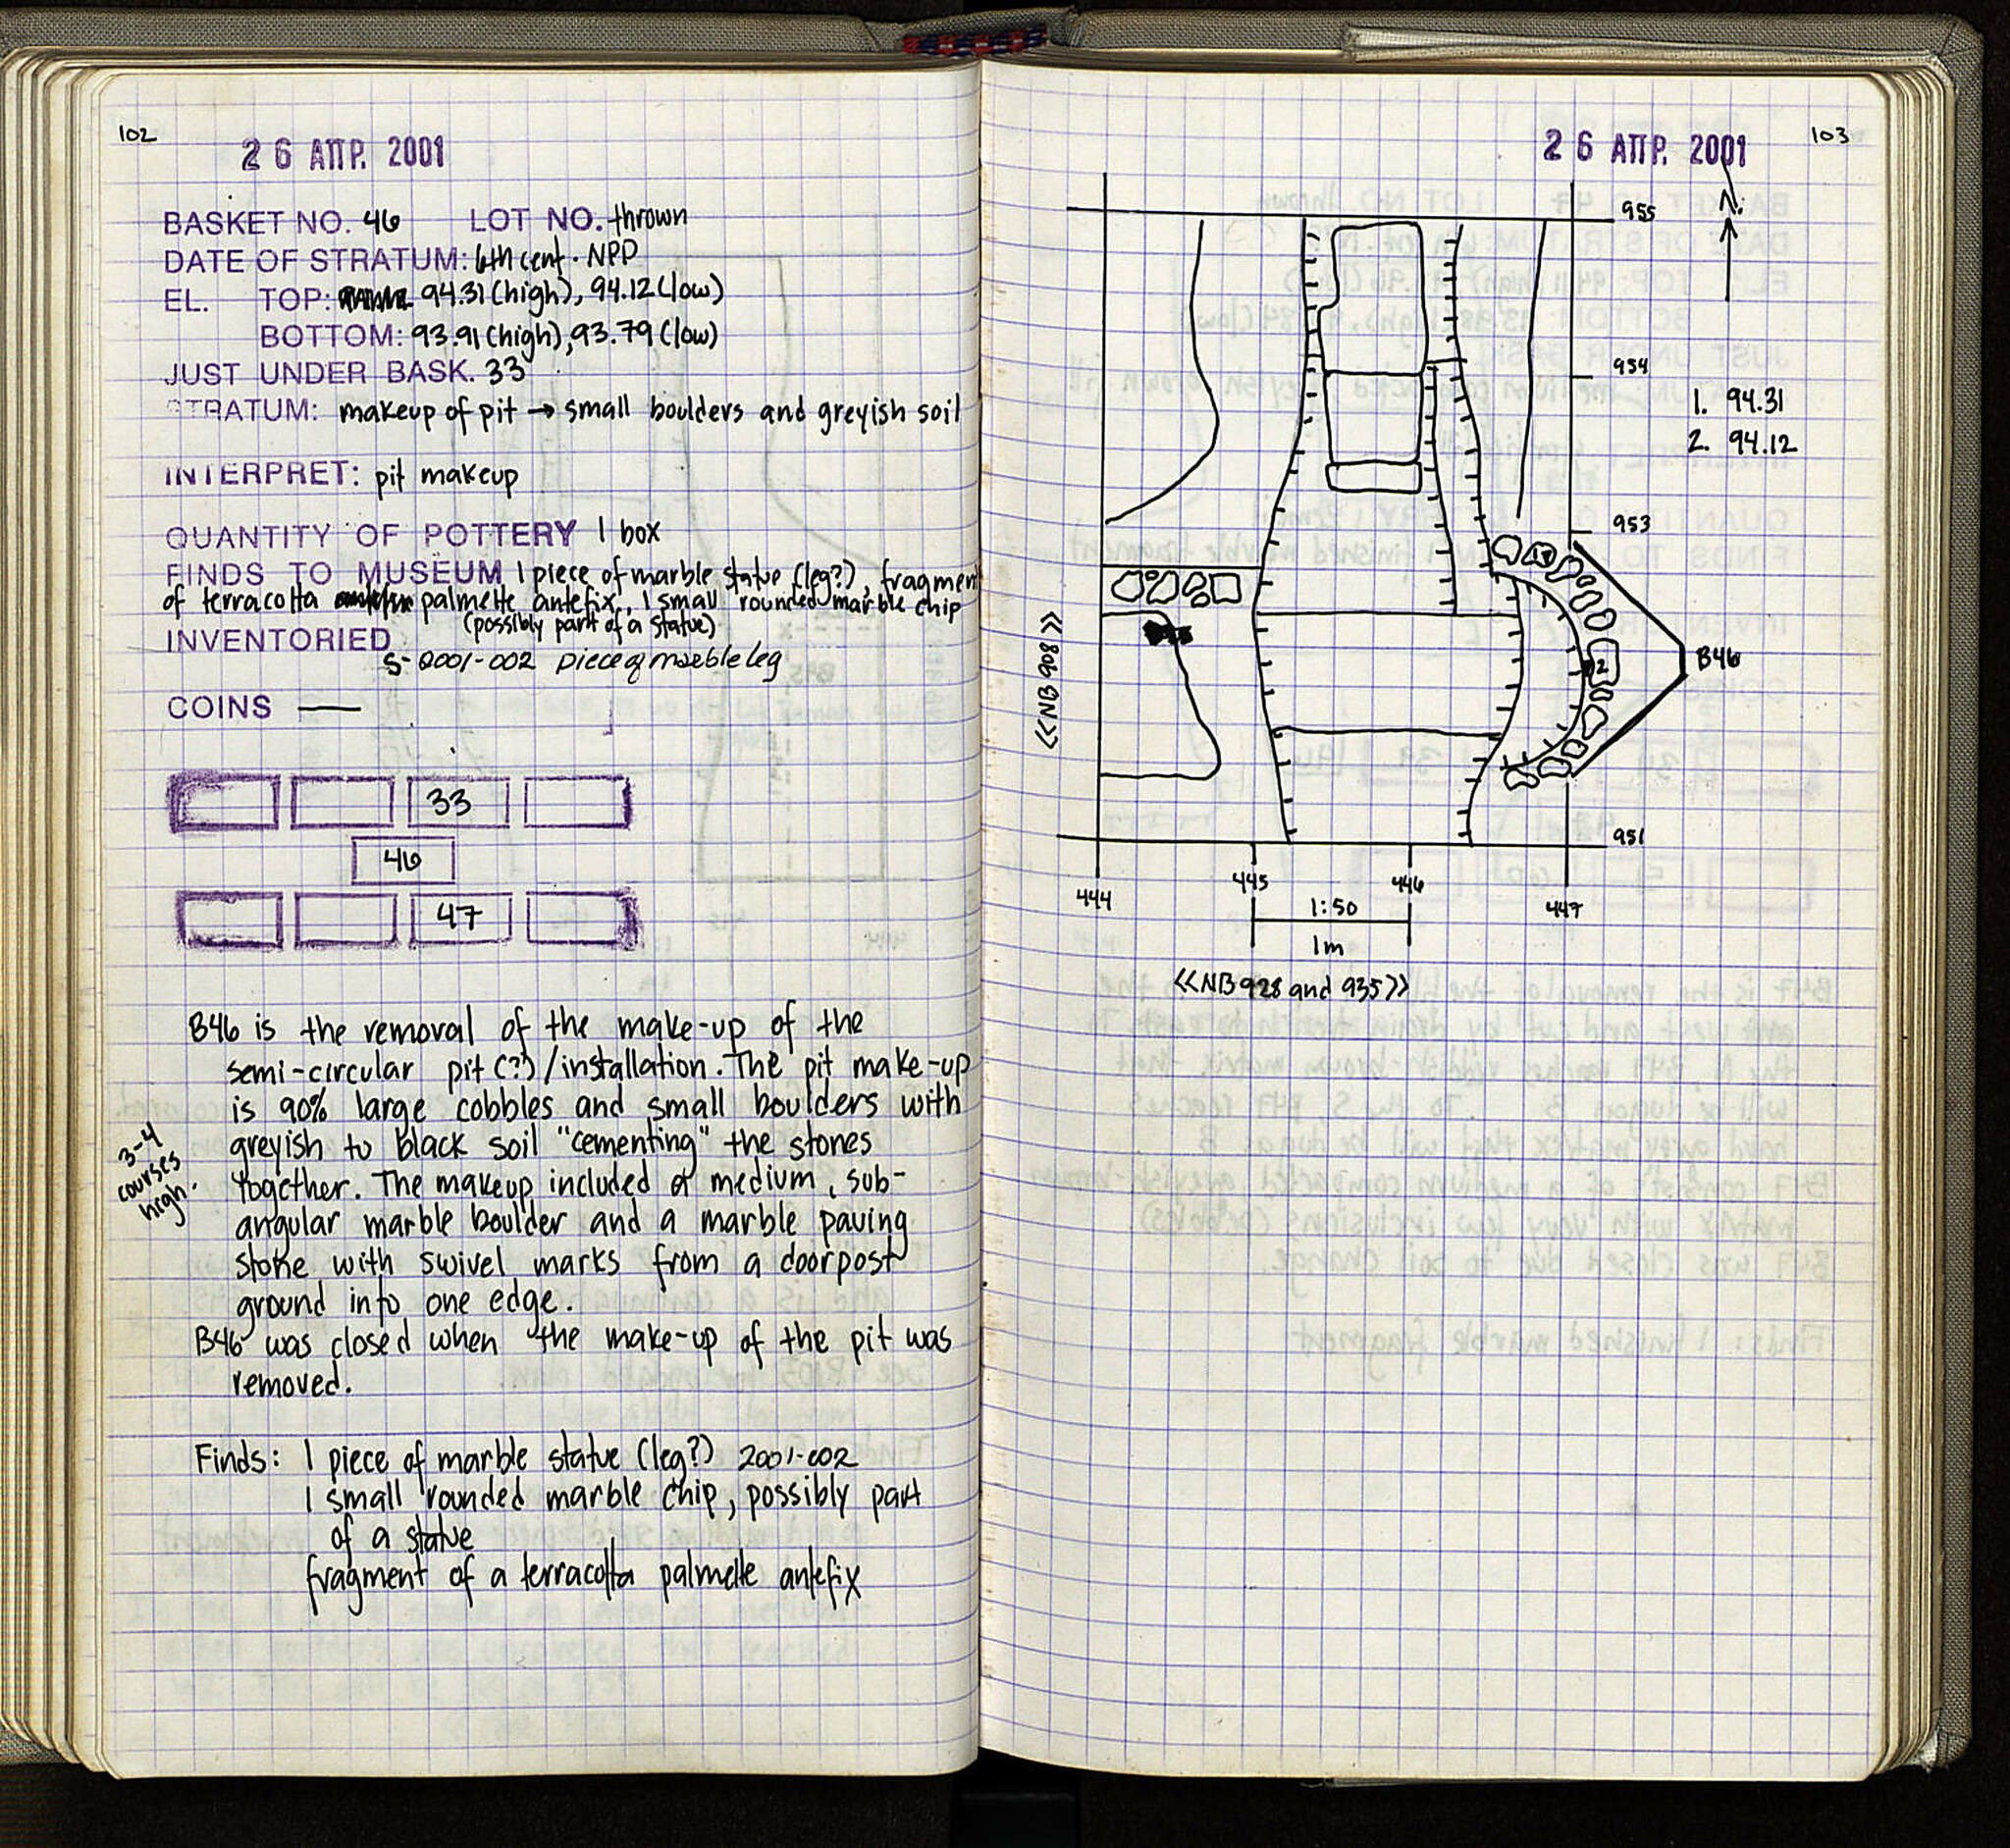 102
26 ΑΠΡ. 2001
BASKET NO. 46 LOT NO. thrown
DATE OF STRATUM: 6th cent. NPD
EL. TOP: 94.31 (high), 94.12 (low)
BOTTOM: 93.91 (high), 93.79 (low)
JUST UNDER BASK. 33
STRATUM: makeup of pit → small boulders and greyish soil
INTERPRET: pit makeup
QUANTITY OF POTTERY 1 box
FINDS TO MUSEUM 1 piece of marble statue (leg?), fragment
of terracotta palmette antefix, 1 small rounded marble chip
(possibly part of a statue)
INVENTORIED
S-2001-002 piece of marble leg
COINS —
33
46
47
B46 is the removal of the make-up of the
semi-circular pit (?)/installation. The pit make-up
is 90% large cobbles and small boulders with
greyish to black soil "cementing" the stones
together. The makeup included a medium, sub-
angular marble boulder and a marble paving
stone with swivel marks from a doorpost
ground into one edge.
B46 was closed when the make-up of the pit was
removed.
3-4
courses
high.
Finds: 1 piece of marble statue (leg?) 2001-002
1 small rounded marble chip, possibly part
of a statue
fragment of a terracotta palmette antefix
26 ΑΠΡ. 2001
103
955
N.
954
1. 94.31
2. 94.12
953
1
<<NB 908>>
2
B46
951
444
445
446
447
1:50
1m
<<NB 928 and 935>>